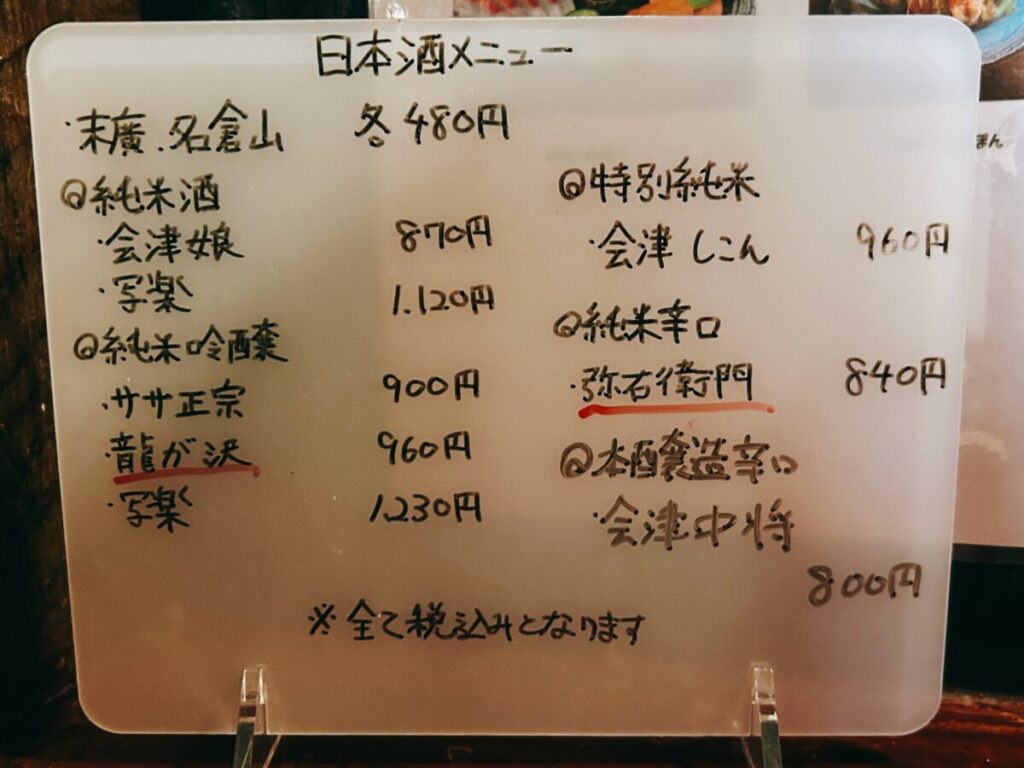 日本酒メニュー
・末廣、名倉山 各480円
◎純米酒
・会津娘 870円
・写楽 1,120円
◎純米吟醸
・ササ正宗 900円
・龍が沢 960円
・写楽 1,230円
◎特別純米
・会津しこん 960円
◎純米辛口
・弥右衛門 840円
◎本醸造辛口
・会津中将
800円
※全て税込みとなります
ぽん